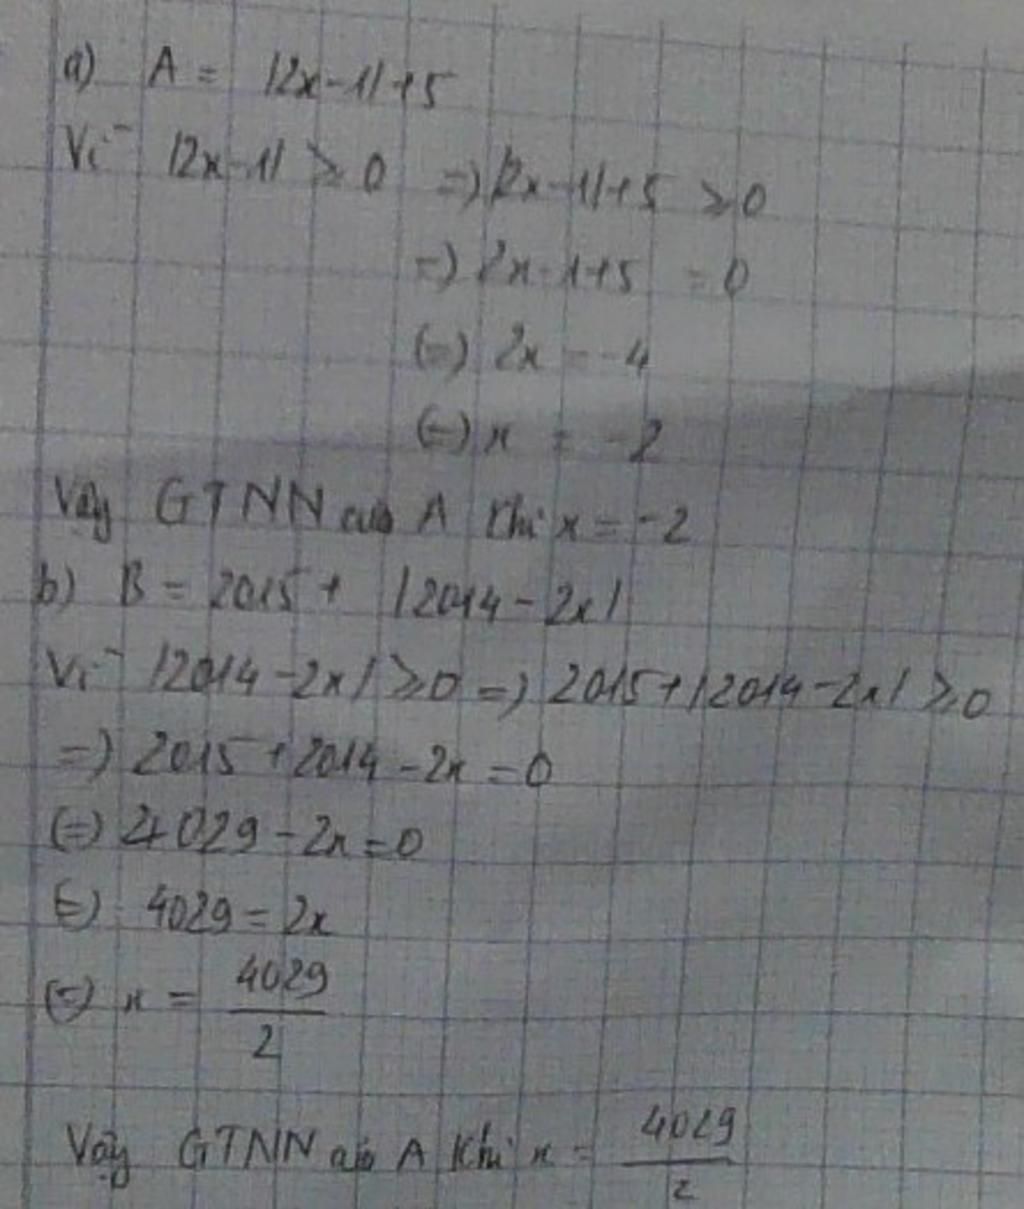 a) A = |2x-1|+5
Vì |2x-1| ≥ 0 => |2x-1|+5 ≥ 0
=> 2x-1+5 = 0
(=) 2x = -4
(=) x = -2
Vậy GTNN của A khi x = -2
b) B = 2015 + |2014-2x|
Vì |2014-2x| ≥ 0 => 2015+|2014-2x| ≥ 0
=> 2015+2014-2x = 0
(=) 4029-2x = 0
(=) 4029 = 2x
(=) x = 4029/2
Vậy GTNN của A khi x = 4029/2